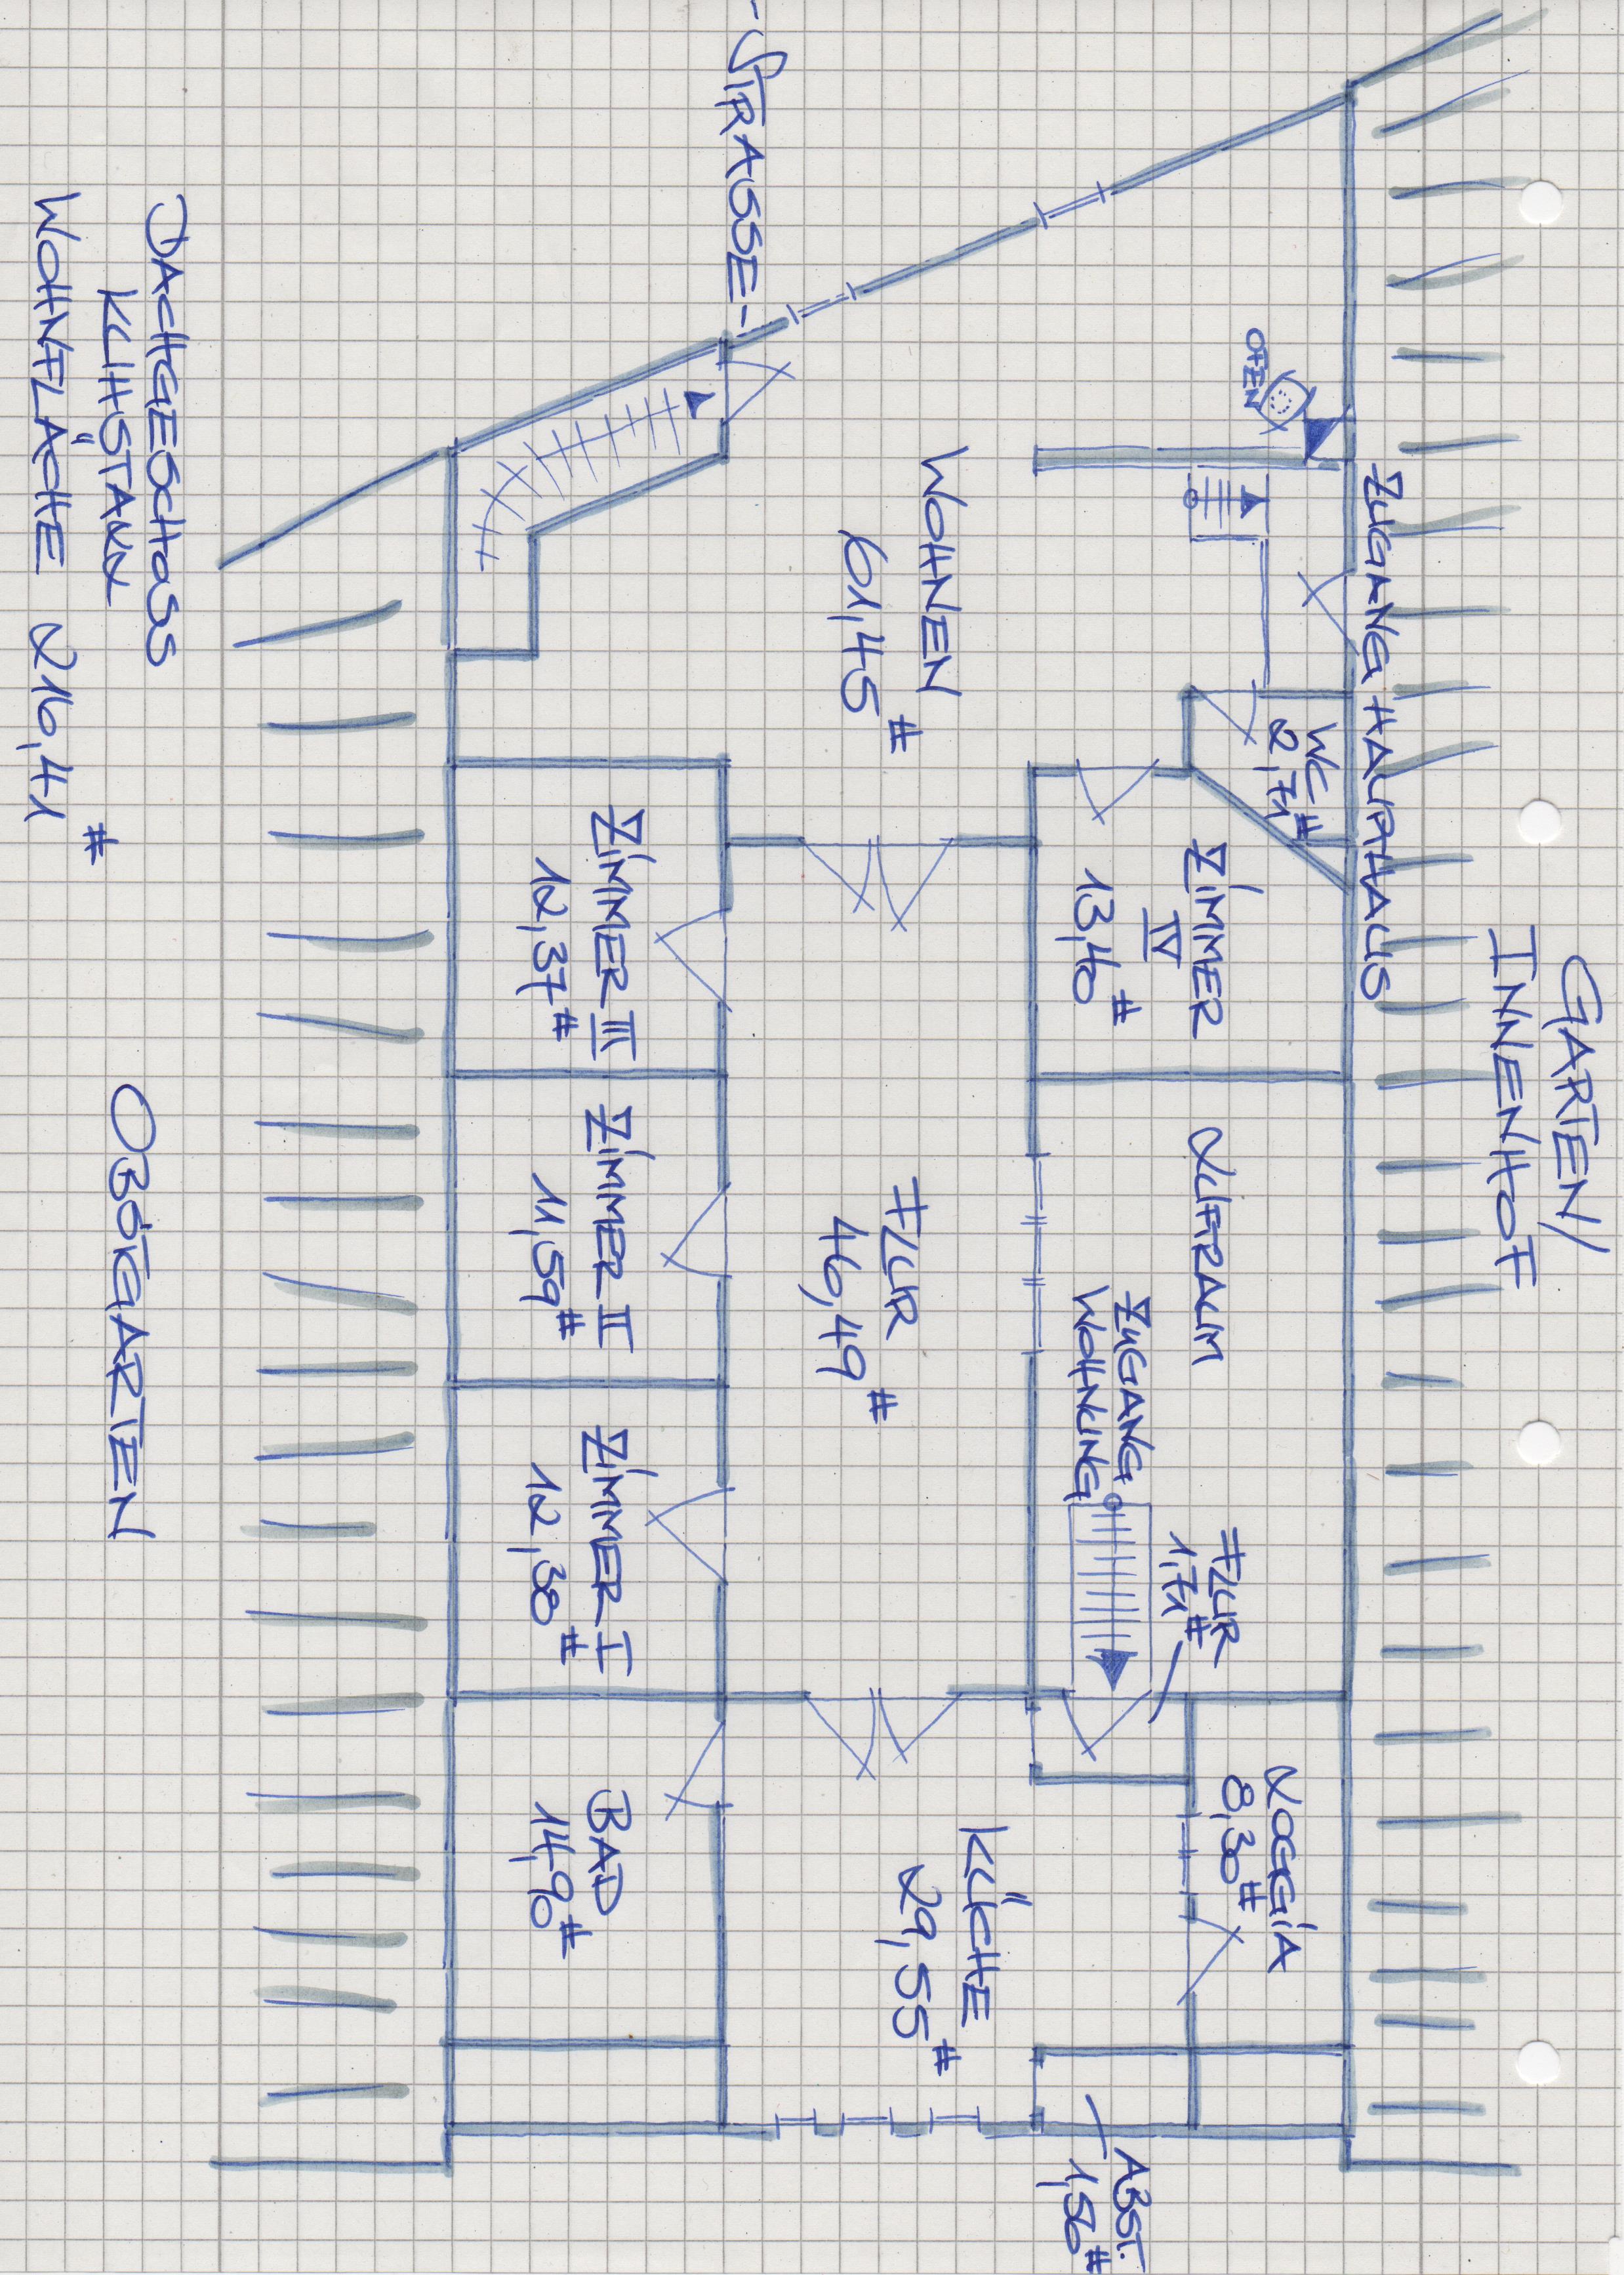 GARTEN/
INNENHOF
ZUGANG HAUPTHAUS
OFEN
WC
2,71 #
ZIMMER
IV
13,40 #
LUFTRAUM
ZUGANG
WOHNUNG
FLUR
1,71 #
LOGGIA
8,30 #
ABST.
1,56 #
WOHNEN
61,45 #
FLUR
46,49 #
KÜCHE
29,55 #
--STRASSE--
ZIMMER III
12,37 #
ZIMMER II
11,59 #
ZIMMER I
12,38 #
BAD
14,90 #
DACHGESCHOSS
KUHSTALL
WOHNFLÄCHE 216,41 #
OBSTGARTEN